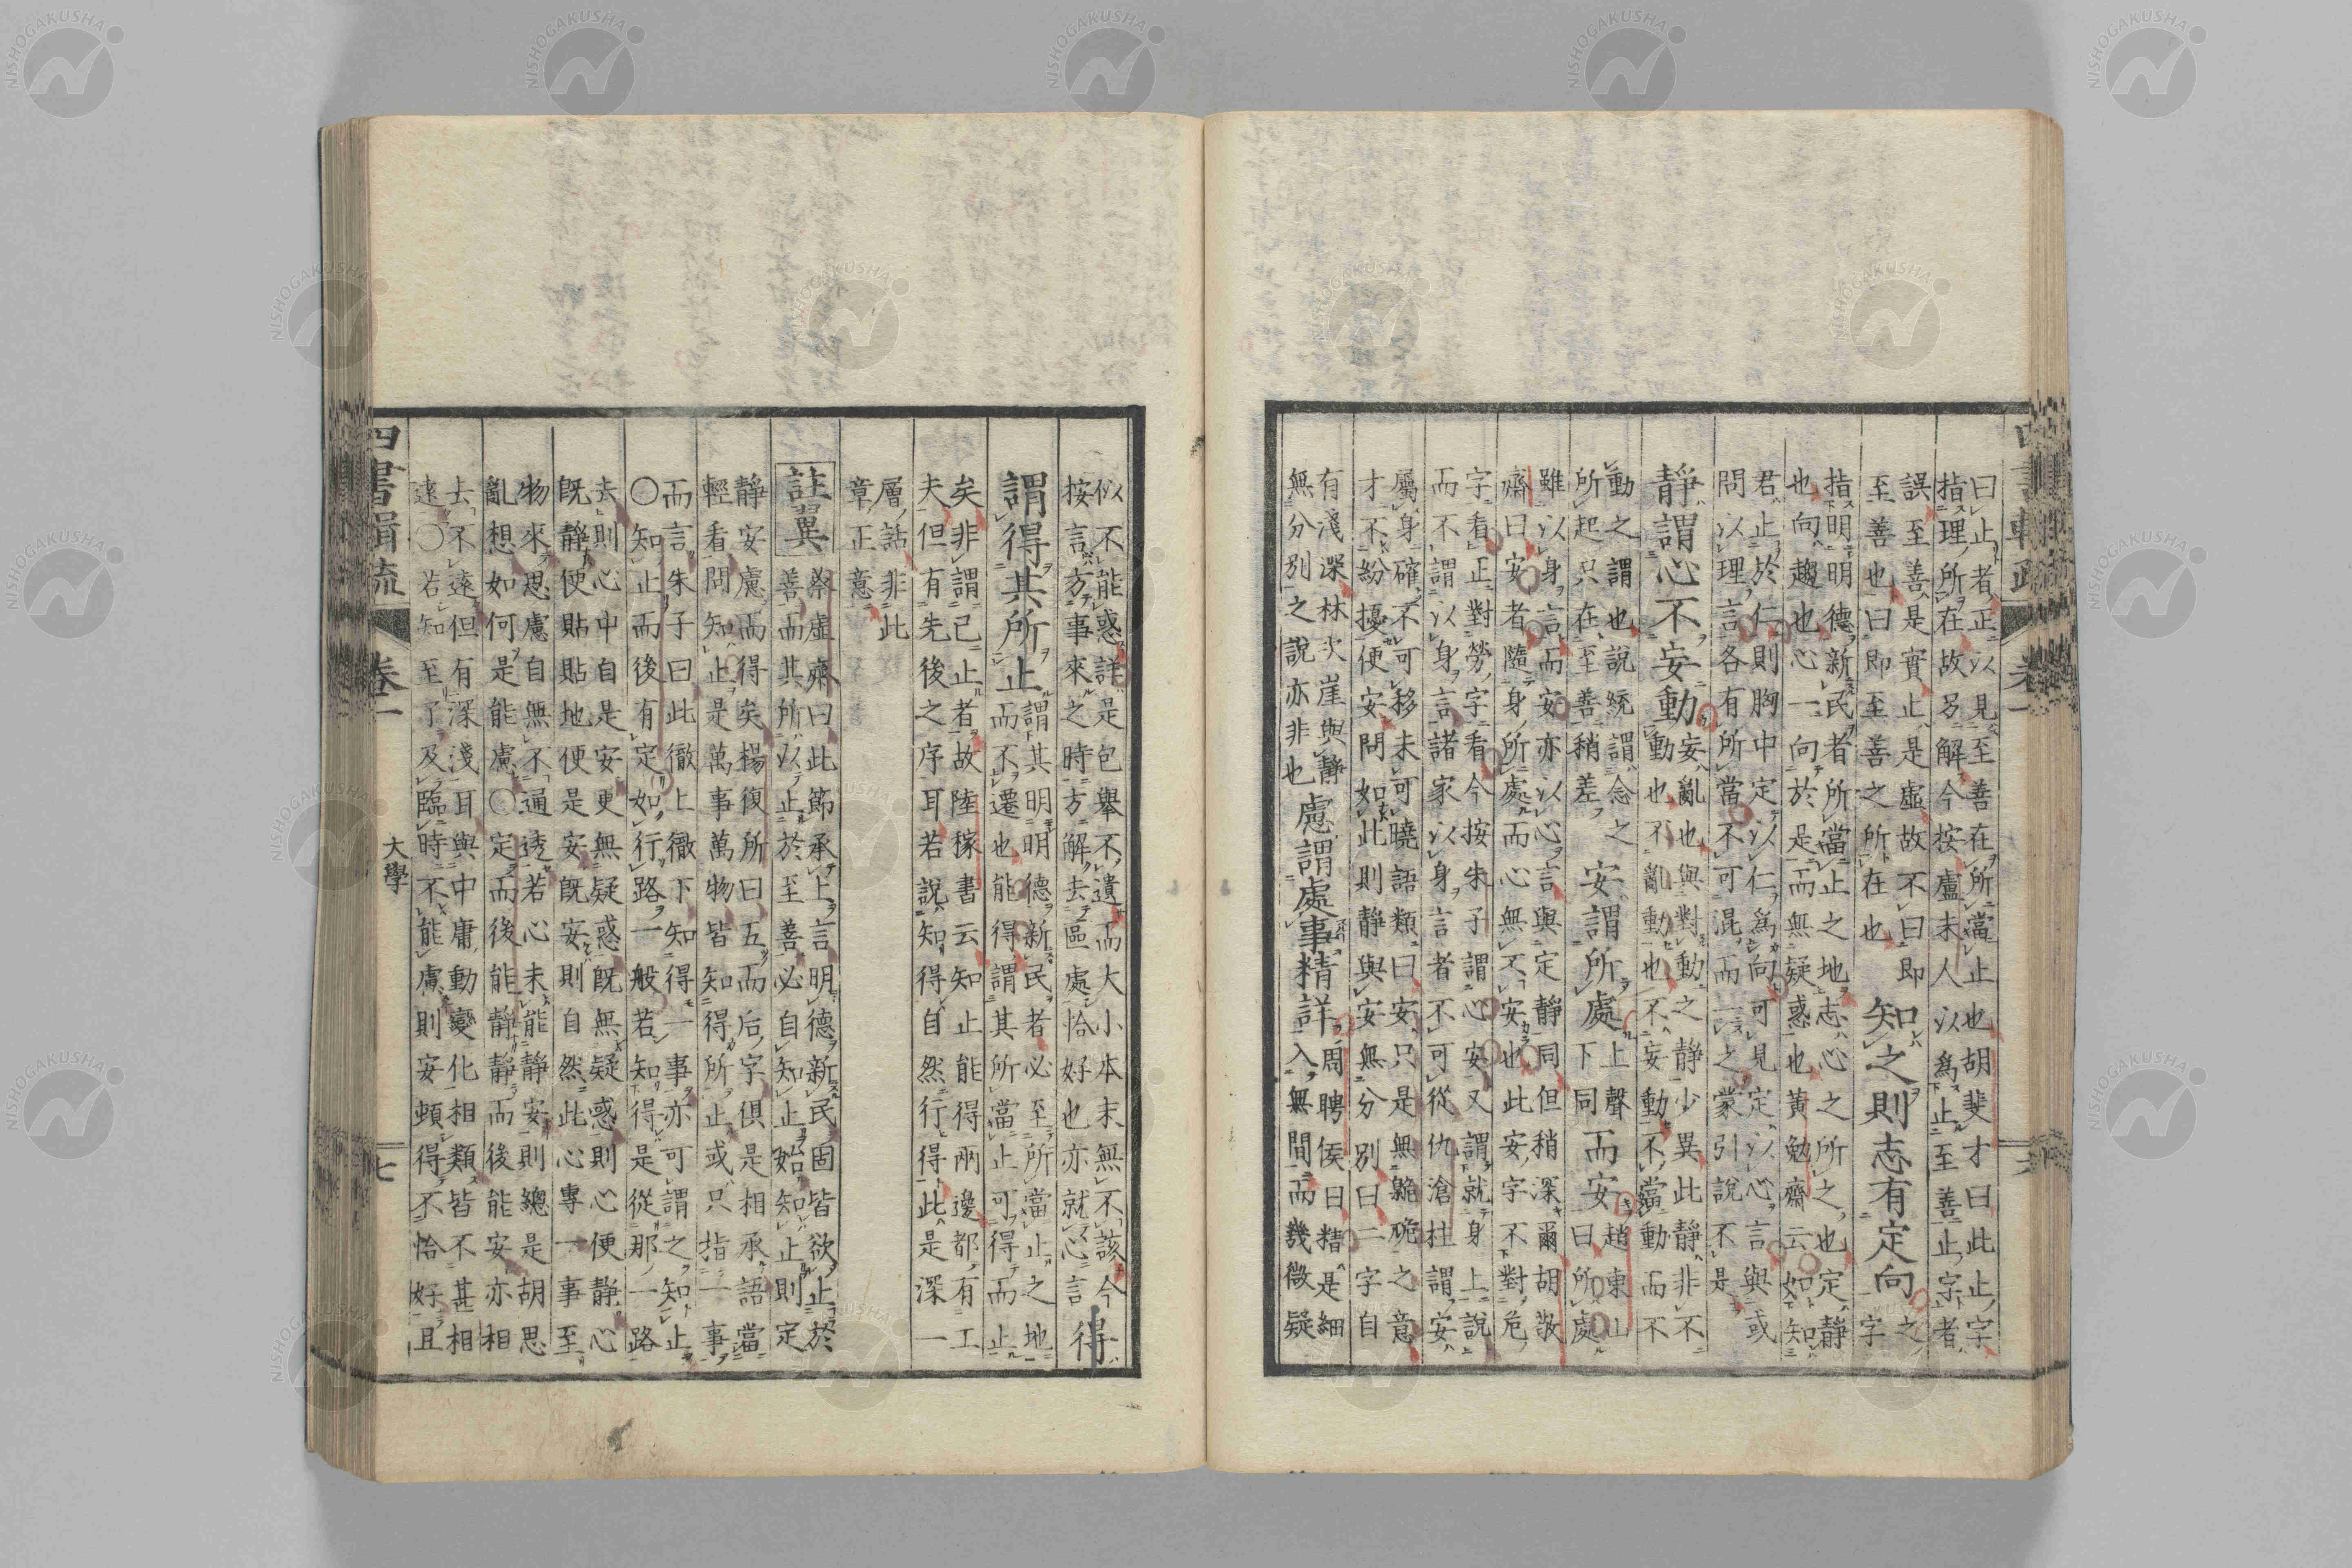 曰止者正以見至善在所當止也胡斐才曰此止字
指理所在故另解今按盧未人以爲止至善止字者
誤至善是實止是虛故不曰即
至善也曰即至善之所在也
知之則志有定向
之
字
指明明德新民者所當止之地志心之所之也定靜
也向趨也心一向於是而無疑惑也黃勉齋云如知
君止於仁則胸中定以仁爲向可見定以心言與或
問以理言各有所當不可混而一之蒙引說不是
靜謂心不妄動
妄亂也與對動之靜少異此靜非不
動也不亂動也不妄動不當動而不
動之謂也說統謂念之
所起只在至善稍差
安謂所處
上聲
下同
而安
趙東山
曰所處
雖以身言而安亦以心言與定靜同但稍深爾胡敬
齋曰安者隨身所處而心無不安也此安字不對危
字看正對勞字看今按朱子謂心安又謂就身上說
而不謂以身言諸家以身言者不可從仇滄柱謂安
屬身確不可移未可曉語類曰安只是無臲卼之意
才不紛擾便安問如此則靜與安無分別曰二字自
有淺深林次崖與靜
無分別之說亦非也
慮謂處事精詳
周聘侯曰精是細
入無間而幾微疑
似不能惑詳是包舉不遺而大小本末無不該今
按言方事來之時方解去區處恰好也亦就心言
得
謂得其所止
謂其明明德新民者必至所當止之地
而不遷也能得謂其所當止可得而止
矣非謂已止者故陸稼書云知止能得兩邊都有工
夫但有先後之序耳若說知得自然行得此是深一
層話非此
章正意
註翼
蔡虛齋曰此節承上言明德新民固皆欲止於
善而其所以止於至善必自知止始知止則定
靜安慮而得矣楊復所曰五而后字俱是相承語當
輕看問知止是萬事萬物皆知得所止或只指一事
而言朱子曰此徹上徹下知得一事亦可謂之知止
〇知止而後有定如行路一般若知得是從那一路
去則心中自是安更無疑惑既無疑惑則心便靜心
既靜便貼貼地便是安既安則自然此心專一事至
物來思慮自無不通透若心未能靜安則總是胡思
亂想如何是能慮〇定而後能靜靜而後能安亦相
去不遠但有深淺耳與中庸動變化相類皆不甚相
遠〇若知至了及臨時不能慮則安頓得不恰好且
四書輯疏
卷一
大學
七